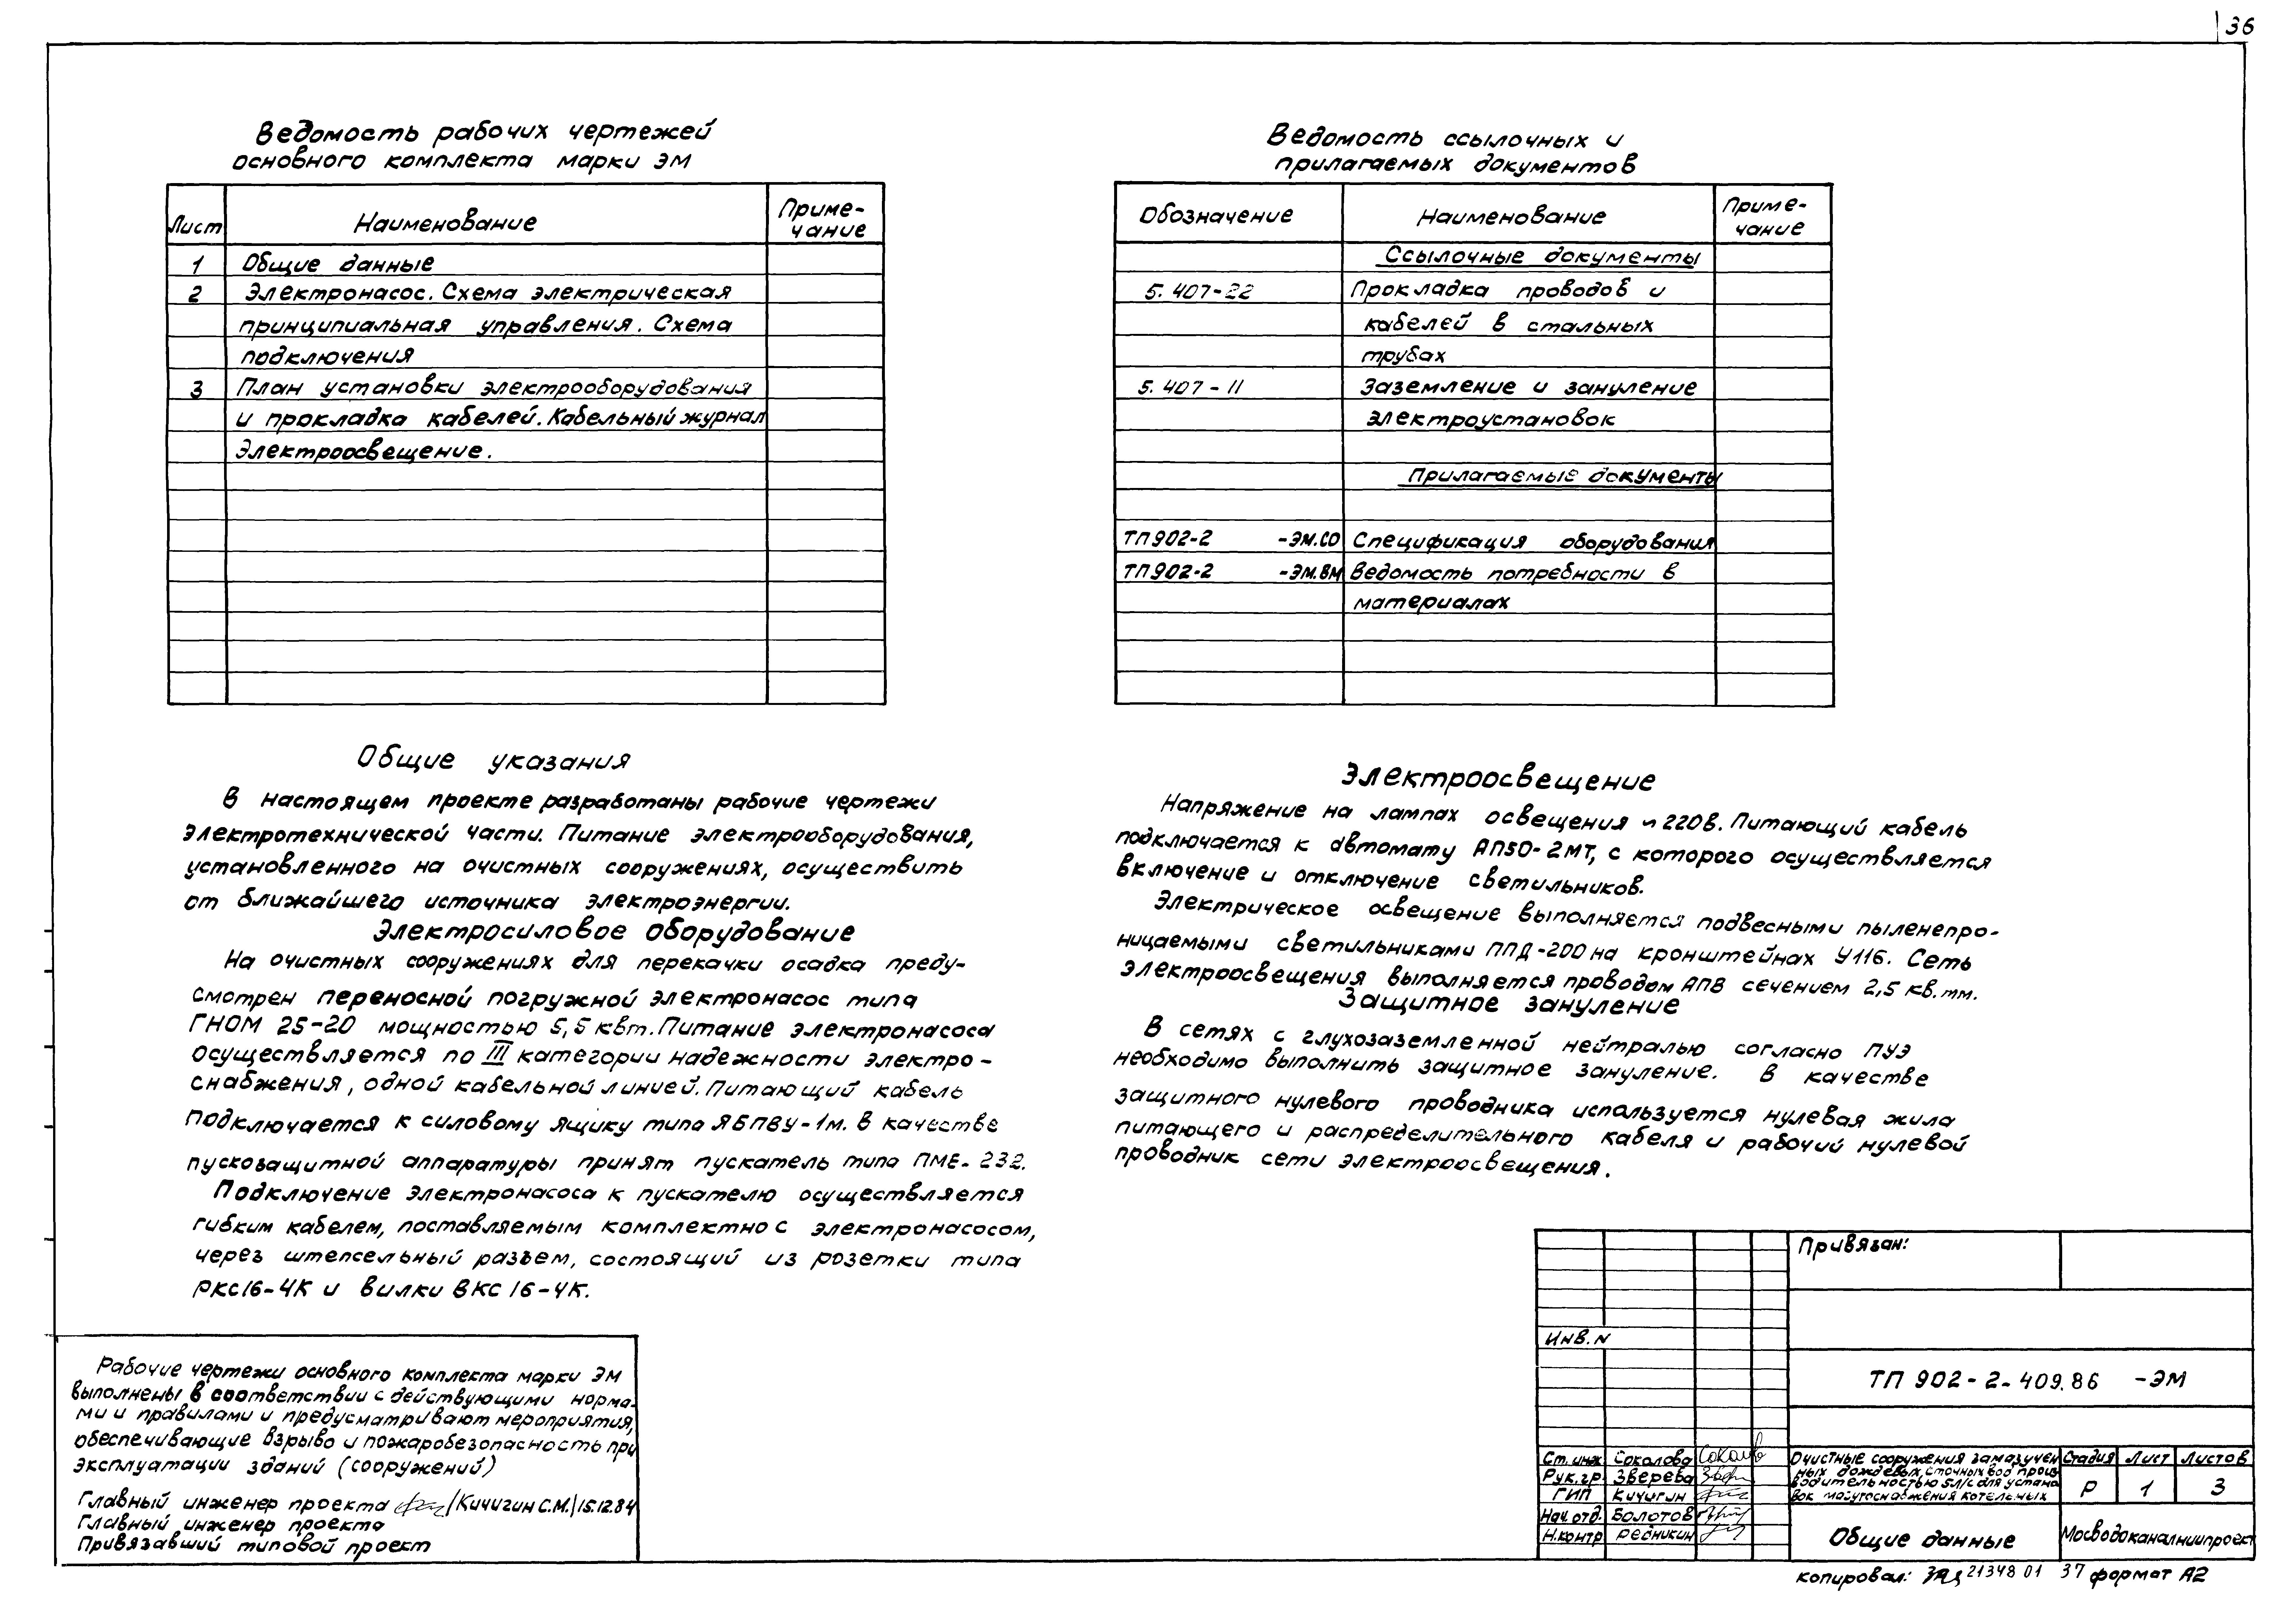 36
Ведомость рабочих чертежей
основного комплекта марки ЭМ
Лист Наименование Приме-
чание
1 Общие данные
2 Электронасос. Схема электрическая
принципиальная управления. Схема
подключения
3 План установки электрооборудования
и прокладка кабелей. Кабельный журнал
Электроосвещение.
Ведомость ссылочных и
прилагаемых документов
Обозначение Наименование Приме-
чание
Ссылочные документы
5.407-22 Прокладка проводов и
кабелей в стальных
трубах
5.407-11 Заземление и зануление
электроустановок
Прилагаемые документы
ТП902-2 -ЭМ.СО Спецификация оборудования
ТП902-2 -ЭМ.ВМ Ведомость потребности в
материалах
Общие указания
В настоящем проекте разработаны рабочие чертежи
электротехнической части. Питание электрооборудования,
установленного на очистных сооружениях, осуществить
от ближайшего источника электроэнергии.
Электросиловое оборудование
На очистных сооружениях для перекачки осадка преду-
смотрен переносной погружной электронасос типа
ГНОМ 25-20 мощностью 5,5 квт. Питание электронасоса
осуществляется по III категории надежности электро-
снабжения, одной кабельной линией. Питающий кабель
подключается к силовому ящику типа ЯБПВУ-1м. В качестве
пускозащитной аппаратуры принят пускатель типа ПМЕ-232.
Подключение электронасоса к пускателю осуществляется
гибким кабелем, поставляемым комплектно с электронасосом,
через штепсельный разъем, состоящий из розетки типа
РКС16-4К и вилки ВКС 16-4К.
Электроосвещение
Напряжение на лампах освещения ~220В. Питающий кабель
подключается к автомату АП50-2МТ, с которого осуществляется
включение и отключение светильников.
Электрическое освещение выполняется подвесными пыленепро-
ницаемыми светильниками ППД-200 на кронштейнах У116. Сеть
электроосвещения выполняется проводом АПВ сечением 2,5 кв.мм.
Защитное зануление
В сетях с глухозаземленной нейтралью согласно ПУЭ
необходимо выполнить защитное зануление. В качестве
защитного нулевого проводника используется нулевая жила
питающего и распределительного кабеля и рабочий нулевой
проводник сети электроосвещения.
Рабочие чертежи основного комплекта марки ЭМ
выполнены в соответствии с действующими норма-
ми и правилами и предусматривают мероприятия,
обеспечивающие взрыво и пожаробезопасность при
эксплуатации зданий (сооружений)
Главный инженер проекта /Кичигин С.М./ 15.12.84
Главный инженер проекта
Привязавший типовой проект
Привязан:
Инв. N
ТП 902-2-409.86 -ЭМ
Ст. инж. Соколова
Рук. гр. Зверева
ГИП Кичигин
Нач. отд. Болотов
Н.контр Редникин
Очистные сооружения замазучен
ных дождевых сточных вод произ
водительностью 5л/с для устано
вок мазутоснабжения котельных
Стадия Лист Листов
Р 1 3
Общие данные
Мосводоканалниипроект
Копировал: 21348 01 37 формат А2